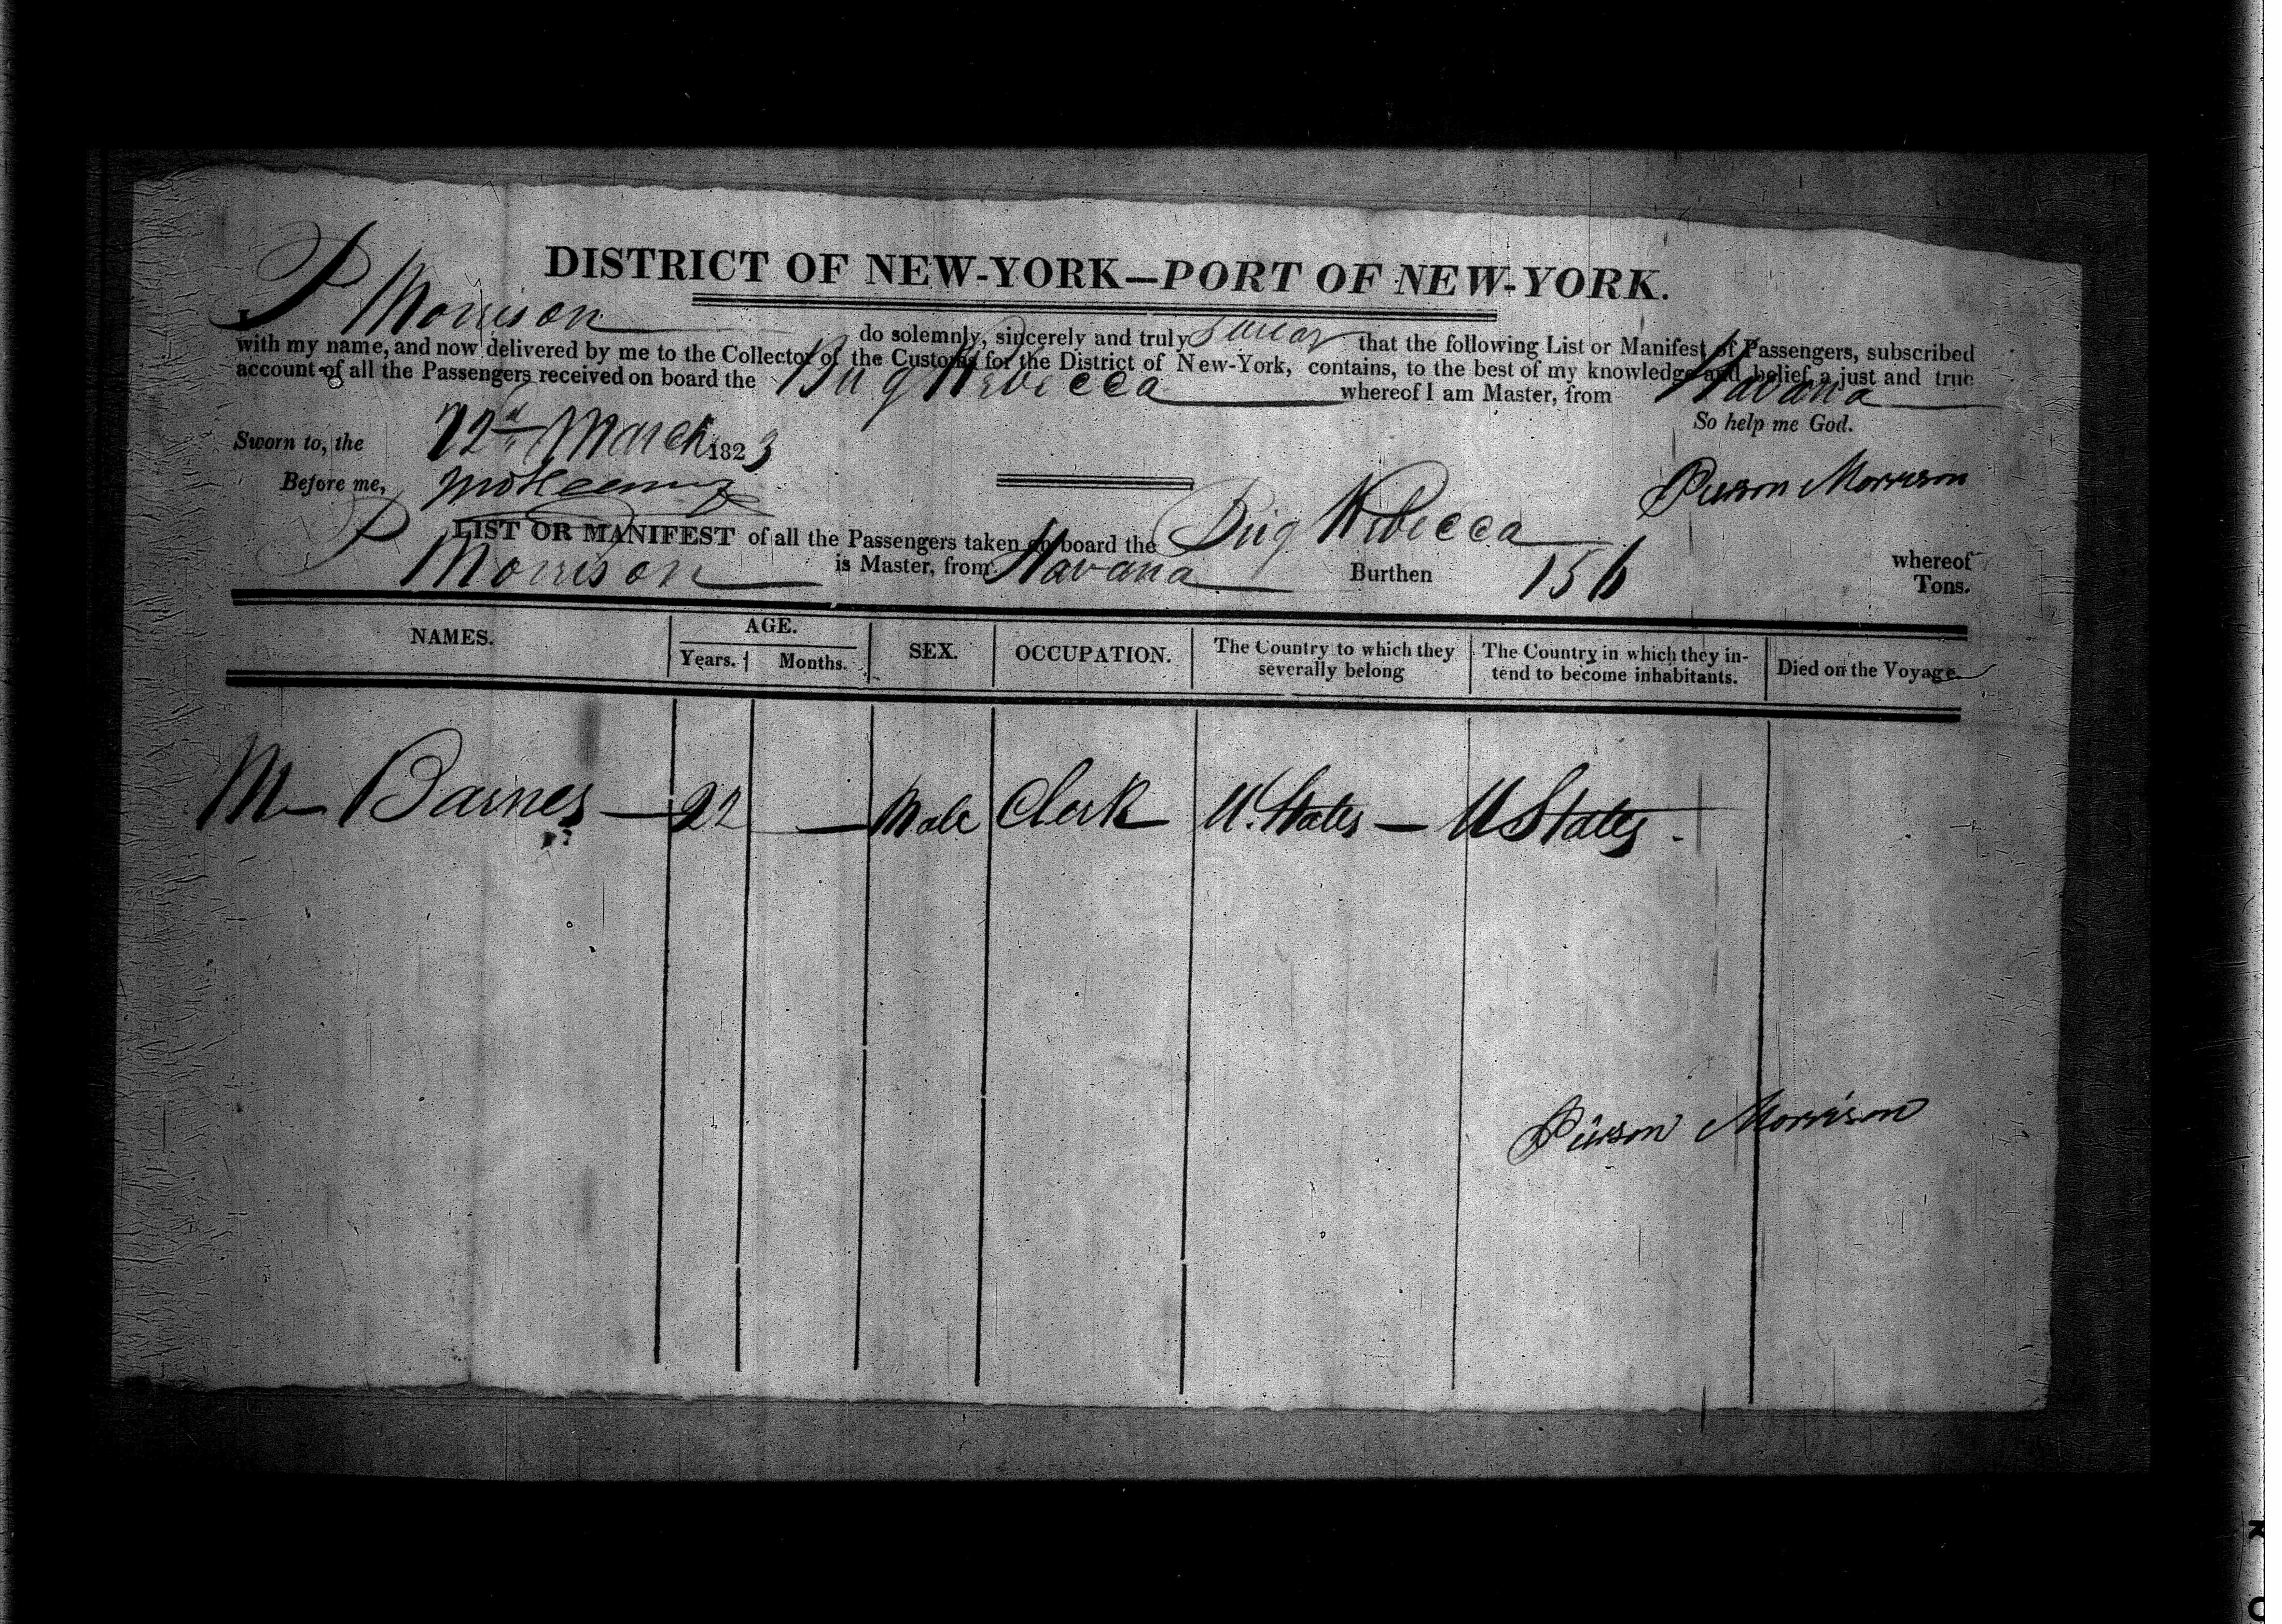 DISTRICT OF NEW-YORK—PORT OF NEW-YORK.
I, P Morrison do solemnly, sincerely and truly swear that the following List or Manifest of Passengers, subscribed
with my name, and now delivered by me to the Collector of the Customs for the District of New-York, contains, to the best of my knowledge and belief, a just and true
account of all the Passengers received on board the Brig Rebecca whereof I am Master, from Havana
So help me God.
Sworn to, the March 1823
Before me,
Pierson Morrison
LIST OR MANIFEST of all the Passengers taken on board the Brig Rebecca whereof
P Morrison is Master, from Havana Burthen 156 Tons.
NAMES. AGE. SEX. OCCUPATION. The Country to which they severally belong The Country in which they in-tend to become inhabitants. Died on the Voyage.
Years. Months.
Mr Barnes — 22 — Male Clerk U. States — U States
Pierson Morrison